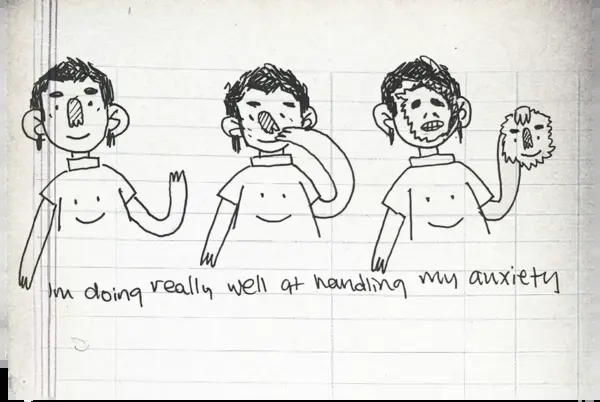 Im doing really well at handling my anxiety